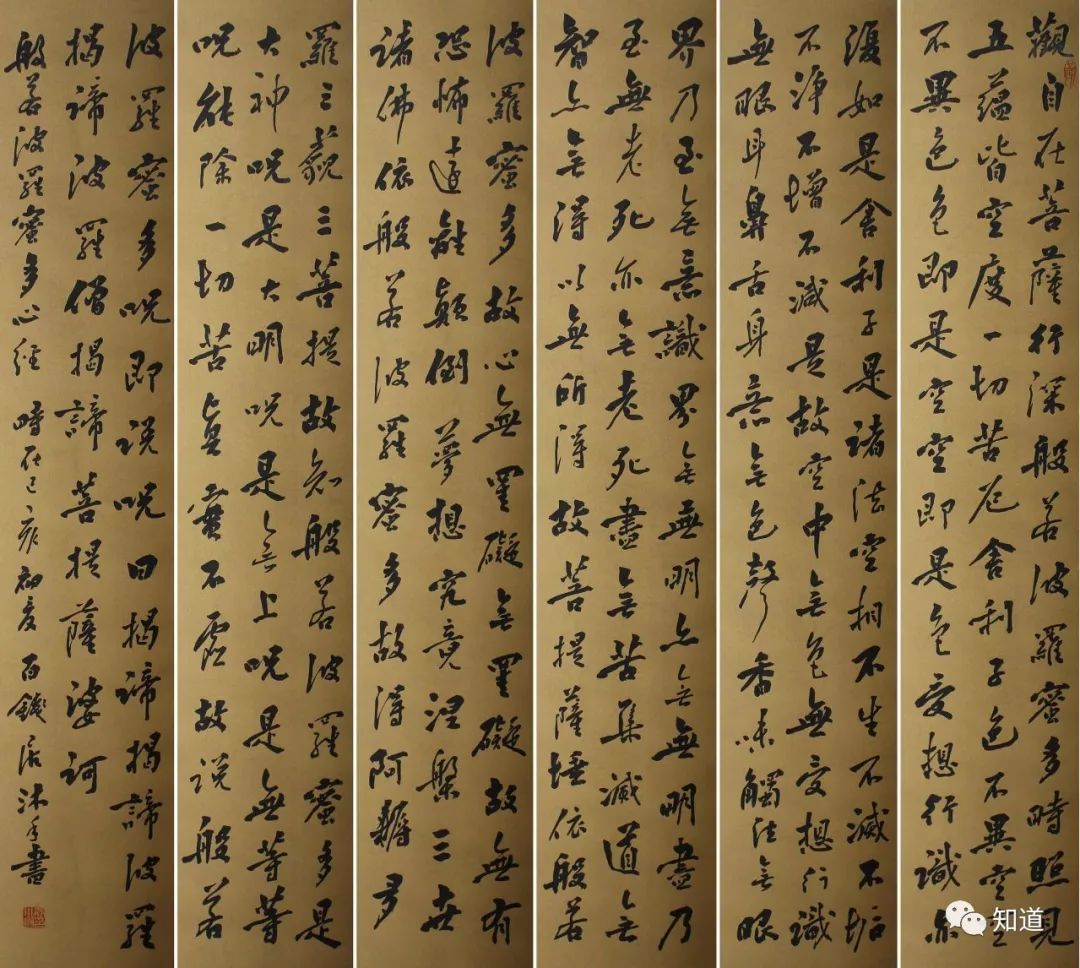 觀自在菩薩行深般若波羅蜜多時照見
五蘊皆空度一切苦厄舍利子色不異空空
不異色色即是空空即是色受想行識亦
復如是舍利子是諸法空相不生不滅不垢
不淨不增不減是故空中無色無受想行識
無眼耳鼻舌身意無色聲香味觸法無眼
界乃至無意識界無無明亦無無明盡乃
至無老死亦無老死盡無苦集滅道無
智亦無得以無所得故菩提薩埵依般若
波羅蜜多故心無罣礙無罣礙故無有
恐怖遠離顛倒夢想究竟涅槃三世
諸佛依般若波羅蜜多故得阿耨多
羅三藐三菩提故知般若波羅蜜多是
大神呪是大明呪是無上呪是無等等
呪能除一切苦真實不虛故說般若
波羅蜜多呪即說呪曰揭諦揭諦波羅
揭諦波羅僧揭諦菩提薩婆訶
般若波羅蜜多心經 時在己亥初夏百居沐手書
知道